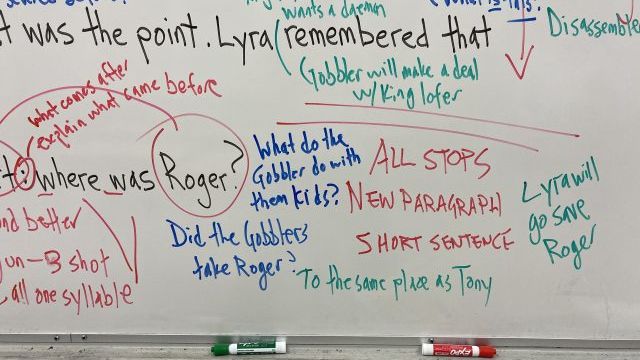 wants a daemon
Disassemble
t was the point. Lyra remembered that
Gobbler will make a deal
w/King Iofer
what comes after
explain what came before
t: where was Roger?
What do the
Gobbler do with
them kids?
ALL STOPS
NEW PARAGRAPH
SHORT SENTENCE
Lyra will
go save
Roger
nd better
un-B shot
all one syllable
Did the Gobblers
take Roger?
To the same place as Tony
EXPO
EXPO